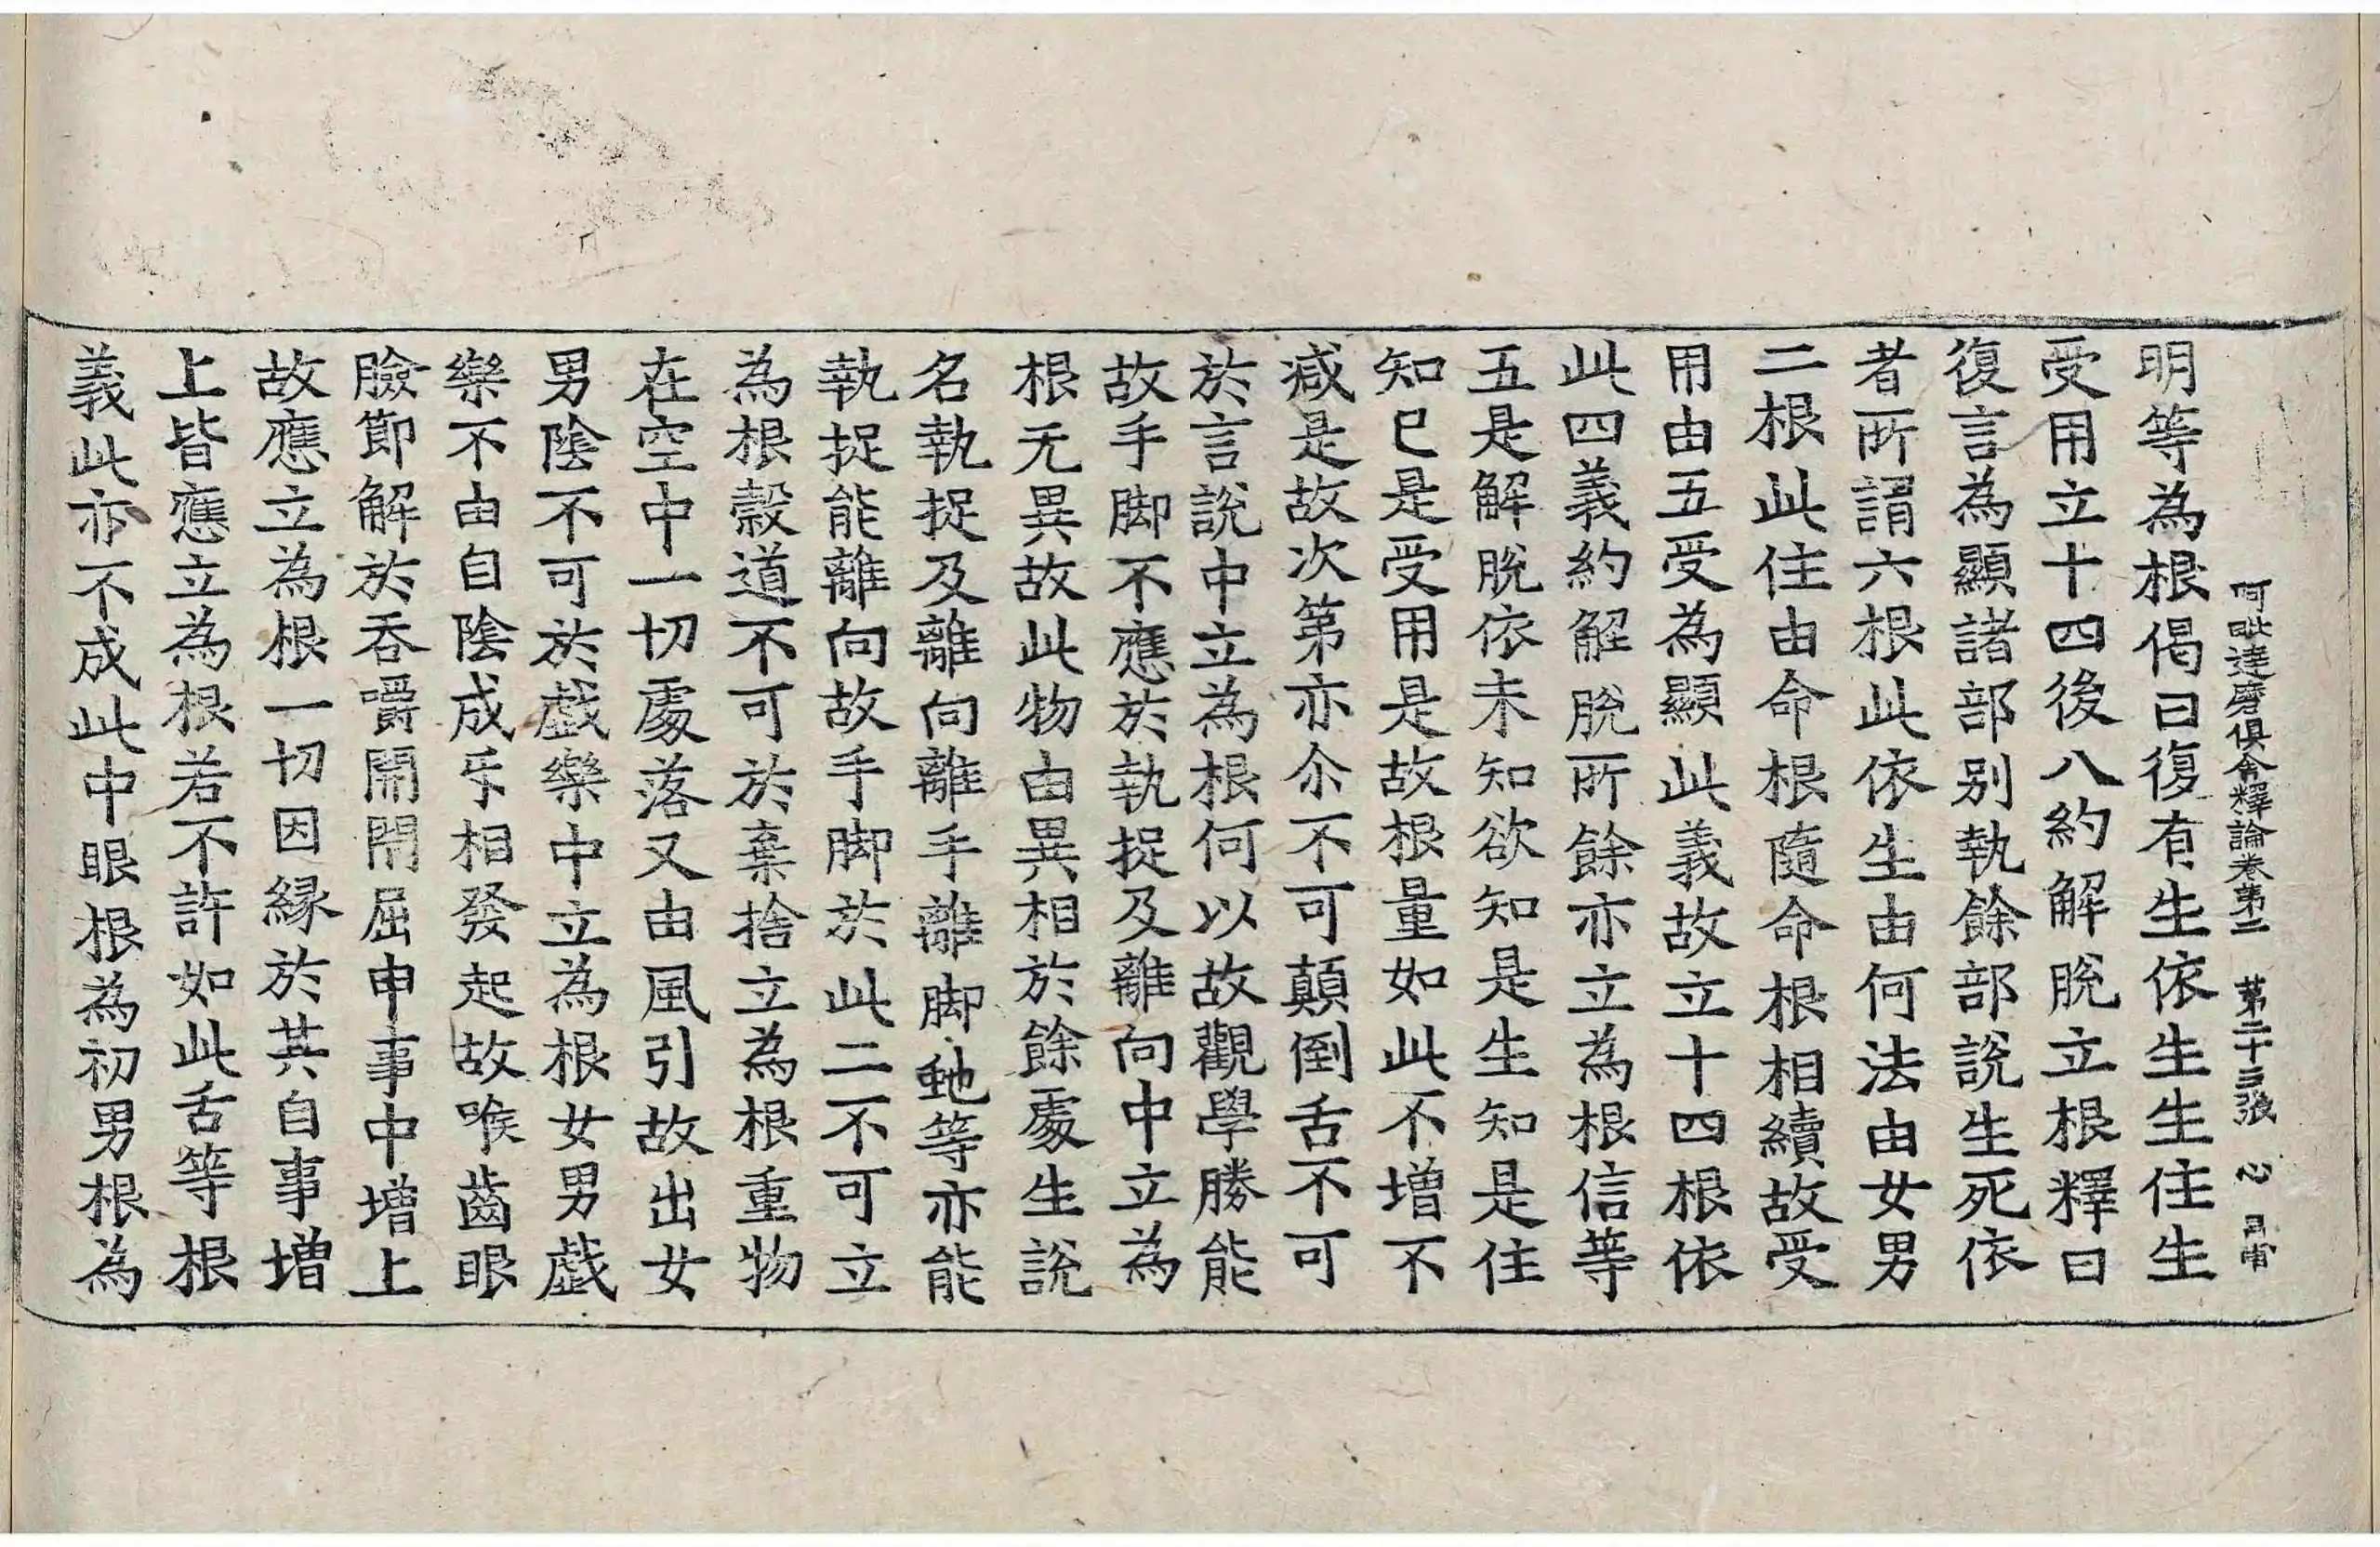 阿毗達磨俱舍釋論卷第二　第二十三張　心
明等為根偈曰復有生依生生住生
受用立十四後八約解脫立根釋曰
復言為顯諸部別執餘部說生死依
者所謂六根此依生由何法由女男
二根此住由命根隨命根相續故受
用由五受為顯此義故立十四根依
此四義約解脫所餘亦立為根信等
五是解脫依未知欲知是生知是住
知已是受用是故根量如此不增不
减是故次第亦尒不可顛倒舌不可
於言說中立為根何以故觀學勝能
故手脚不應於執捉及離向中立為
根无異故此物由異相於餘處生說
名執捉及離向離手離脚虵等亦能
執捉能離向故手脚於此二不可立
為根穀道不可於棄捨立為根重物
在空中一切處落又由風引故出女
男陰不可於戲樂中立為根女男戲
樂不由自陰成㸦相發起故喉齒眼
瞼節解於吞嚼開閇屈申事中增上
故應立為根一切因緣於其自事增
上皆應立為根若不許如此舌等根
義此亦不成此中眼根為初男根為